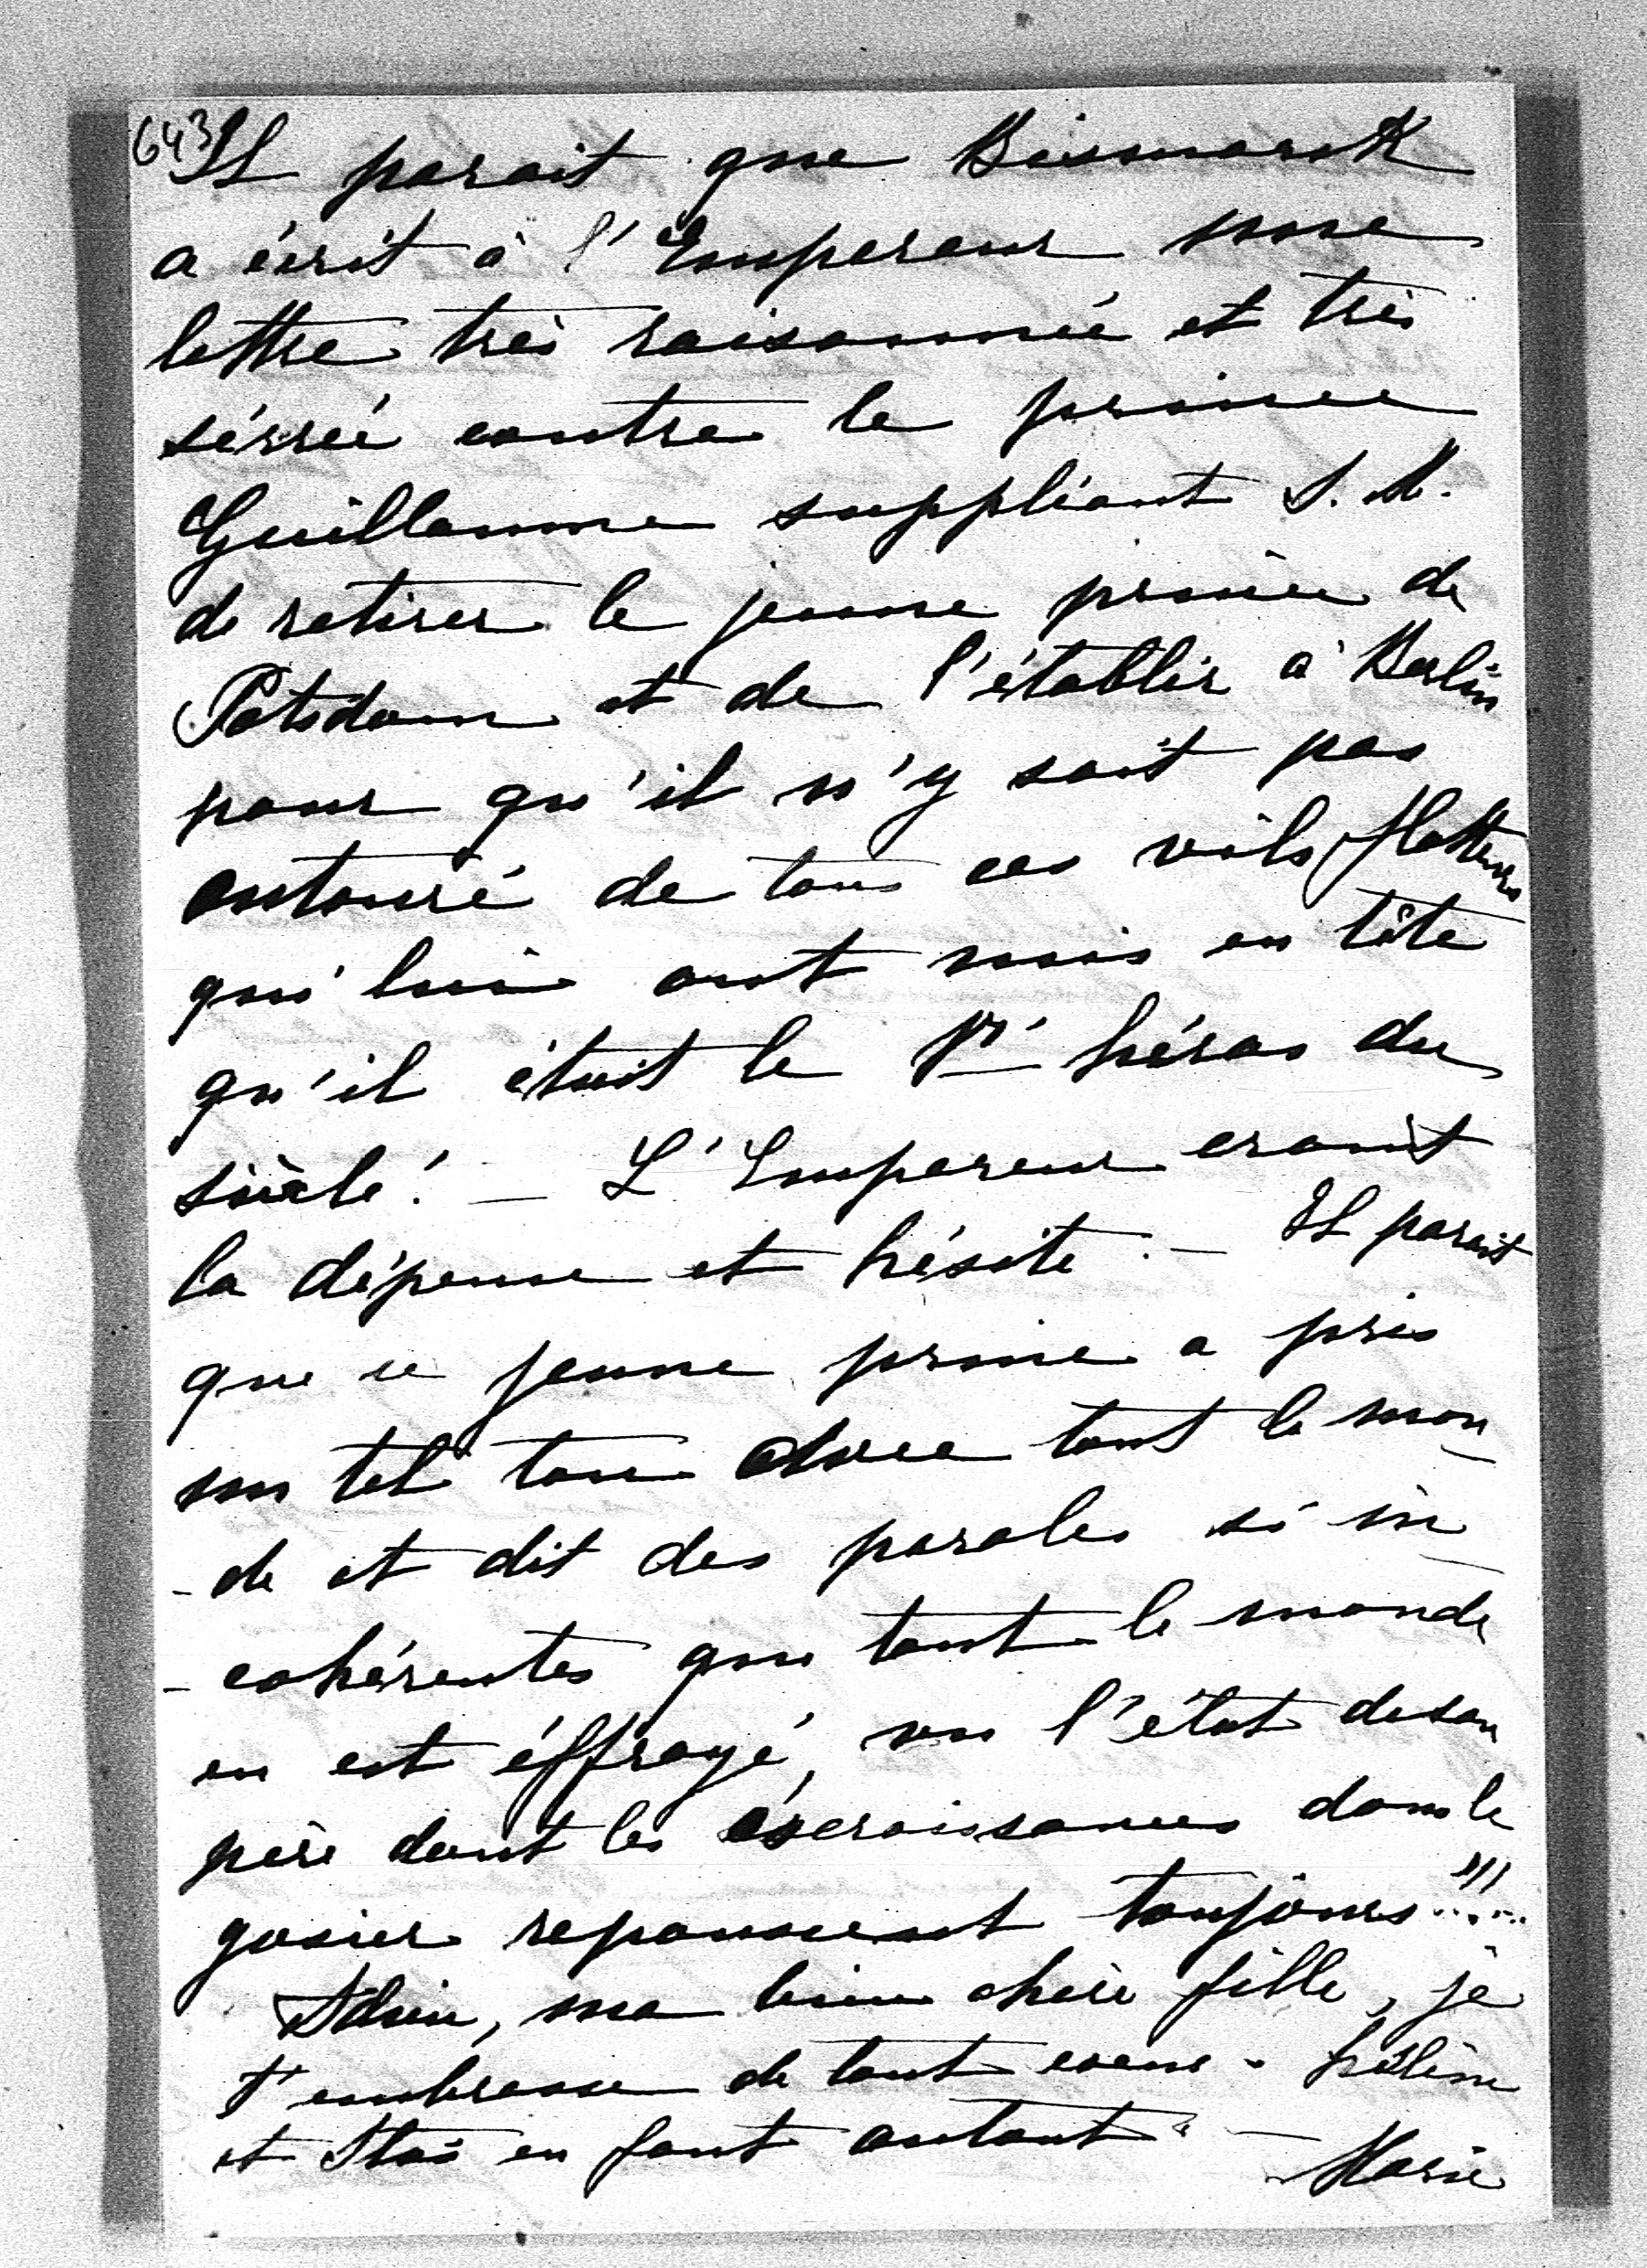 643
Il parait que Bismarck
a écrit à l'Empereur une
lettre très raisonnée et très
sérrée contre le prince
Guillaume suppliant S. M.
de retirer le jeune prince de
Potsdam et de l'établir à Berlin
pour qu'il n'y soit pas
entouré de tous ces vils flatteurs
qui lui ont mis en tête
qu'il était le 1er héros du
siècle! — L'Empereur craint
la dépense et hésite. — Il parait
que ce jeune prince a pris
un tel ton avec tout le mon-
-de et dit des paroles si in-
-cohérentes que tout le monde
en est éffrayé, vu l'état de son
père dont les éxcroissances dans le
gosier repoussent toujours.....!!!
Adieu, ma bien chère fille, je
t'embrasse de tout coeur. Hélène
et Stas en font autant. —
Marie